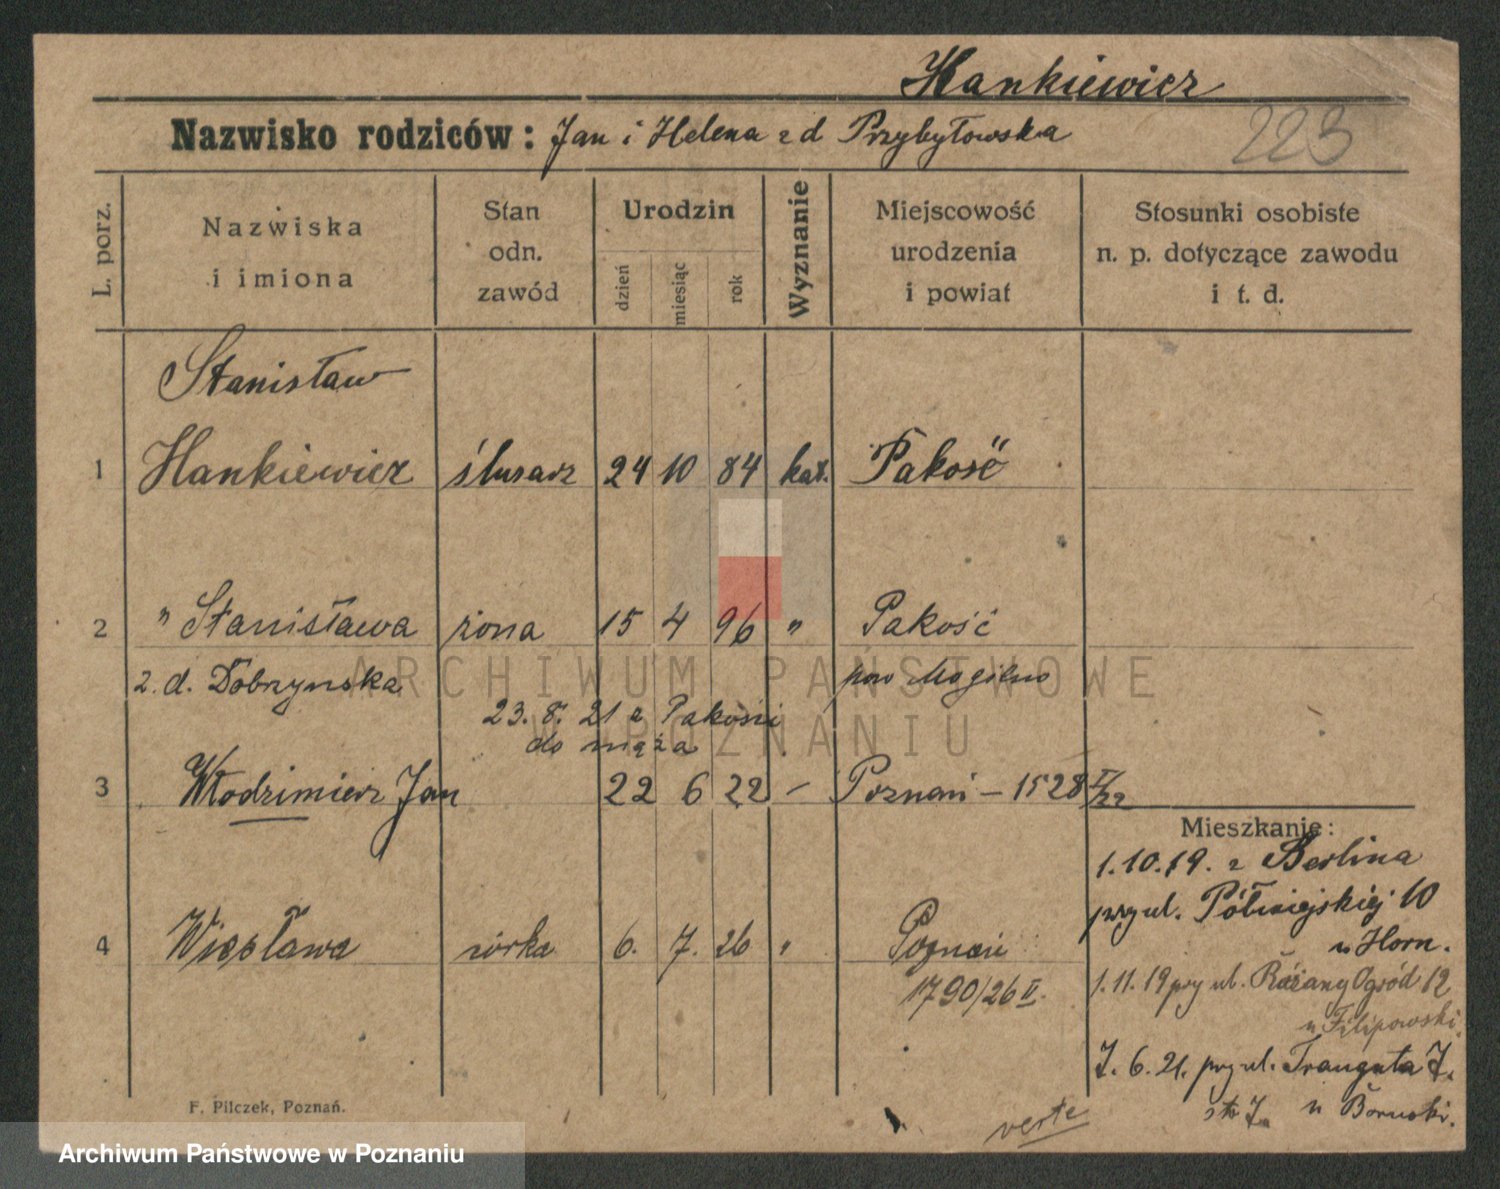 Hankiewicz
Nazwisko rodziców: Jan i Helena z d Przybyłowska
223
L. porz.
Nazwiska
i imiona
Stan
odn.
zawód
Urodzin
dzień
miesiąc
rok
Wyznanie
Miejscowość
urodzenia
i powiat
Stosunki osobiste
n. p. dotyczące zawodu
i t. d.
Stanisław
1 Hankiewicz ślusarz 24 10 84 kat. Pakość
2 " Stanisława żona 15 4 96 " Pakość
z. d. Dobrzynska pow Mogilno
23. 8. 21 z Pakości
do męża
3 Włodzimierz Jan 22 6 22 – Poznań – 1528 /22
Mieszkanie:
1.10.19. z Berlina
przy ul. Półwiejskiej 10
u Horn.
4 Wiesława córka 6. 7. 26 " Poznań
1790/26 II.
1.11.19 przy ul. Różany Ogród 12
u Filipowski.
7. 6. 21. przy ul. Trauguta 7.
u
F. Pilczek, Poznań.
verte
ARCHIWUM PAŃSTWOWE
W POZNANIU
Archiwum Państwowe w Poznaniu